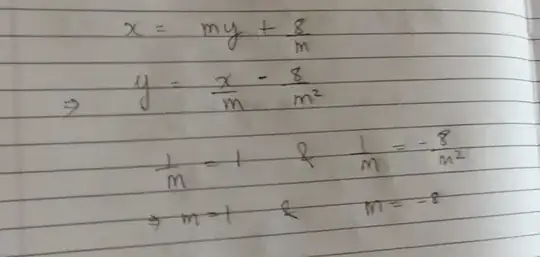 x = my + 8/m
⇒ y = x/m - 8/m²
1/m = 1 & 1/m = -8/m²
⇒ m = 1 & m = -8